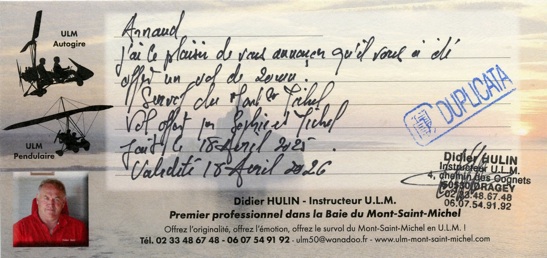 ULM
Autogire
ULM
Pendulaire
Arnaud
j'ai le plaisir de vous annoncer qu'il vous a été
offert un vol de 20 mn.
Survol du Mont St Michel
Vol offert par Sophie et Michel
Fait le 15 Avril 2025
Validité 15 Avril 2026
DUPLICATA
Didier HULIN
Instructeur U.L.M.
4, chemin des Cognets
50530 DRAGEY
02 33 48.67.48
06.07.54.91.92
Didier HULIN - Instructeur U.L.M.
Premier professionnel dans la Baie du Mont-Saint-Michel
Offrez l'originalité, offrez l'émotion, offrez le survol du Mont-Saint-Michel en U.L.M. !
Tél. 02 33 48 67 48 - 06 07 54 91 92 - ulm50@wanadoo.fr - www.ulm-mont-saint-michel.com